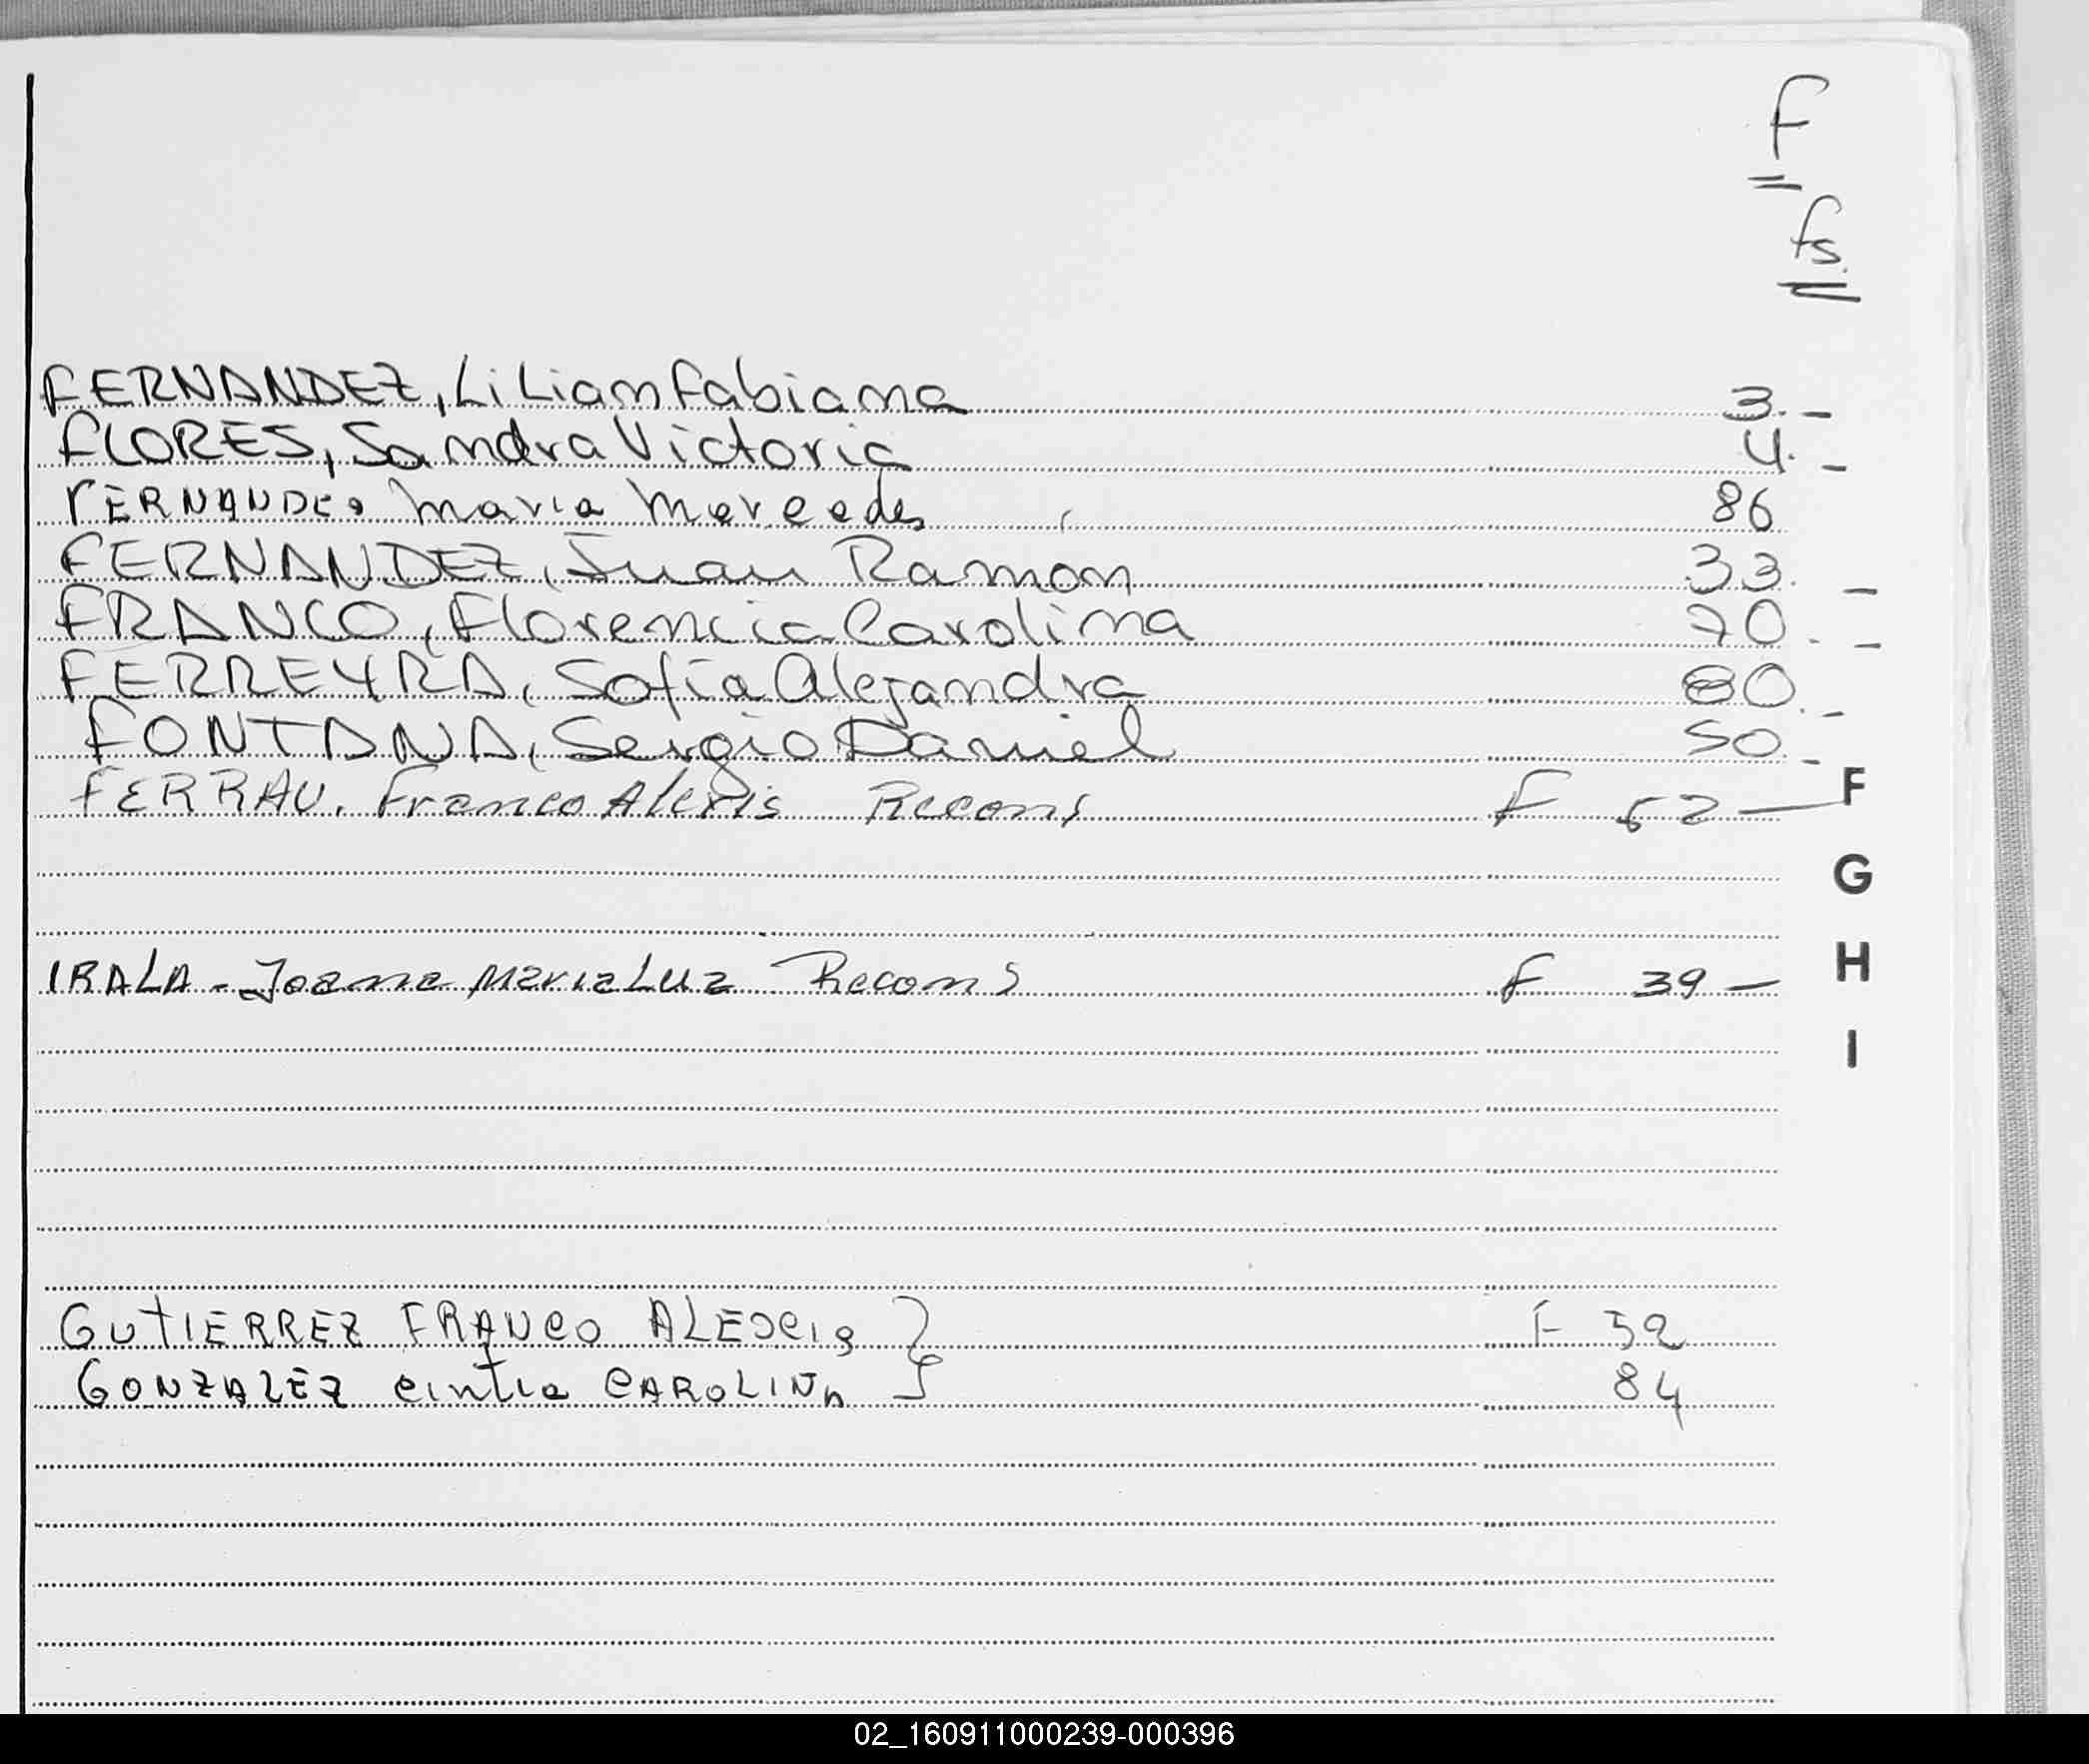 F
fs.
FERNANDEZ, LiLiam Fabiana 3.-
FLORES, Sandra Victoria 4.-
FERNANDEZ Maria Mercedes 86
FERNANDEZ, Juan Ramon 33.-
FRANCO, Florencia Carolina 70.-
FERREYRA, Sofía Alejandra 80.-
FONTANA, Sergio Daniel 50.-
FERRAU. Franco Alexis Recons F 52 —
F
G
IRALA - Joana Maria Luz Recons F 39 —
H
I
GUTIERREZ FRANCO ALEXIS } F 52
GONZALEZ Cintia CAROLINA } 84
02_160911000239-000396